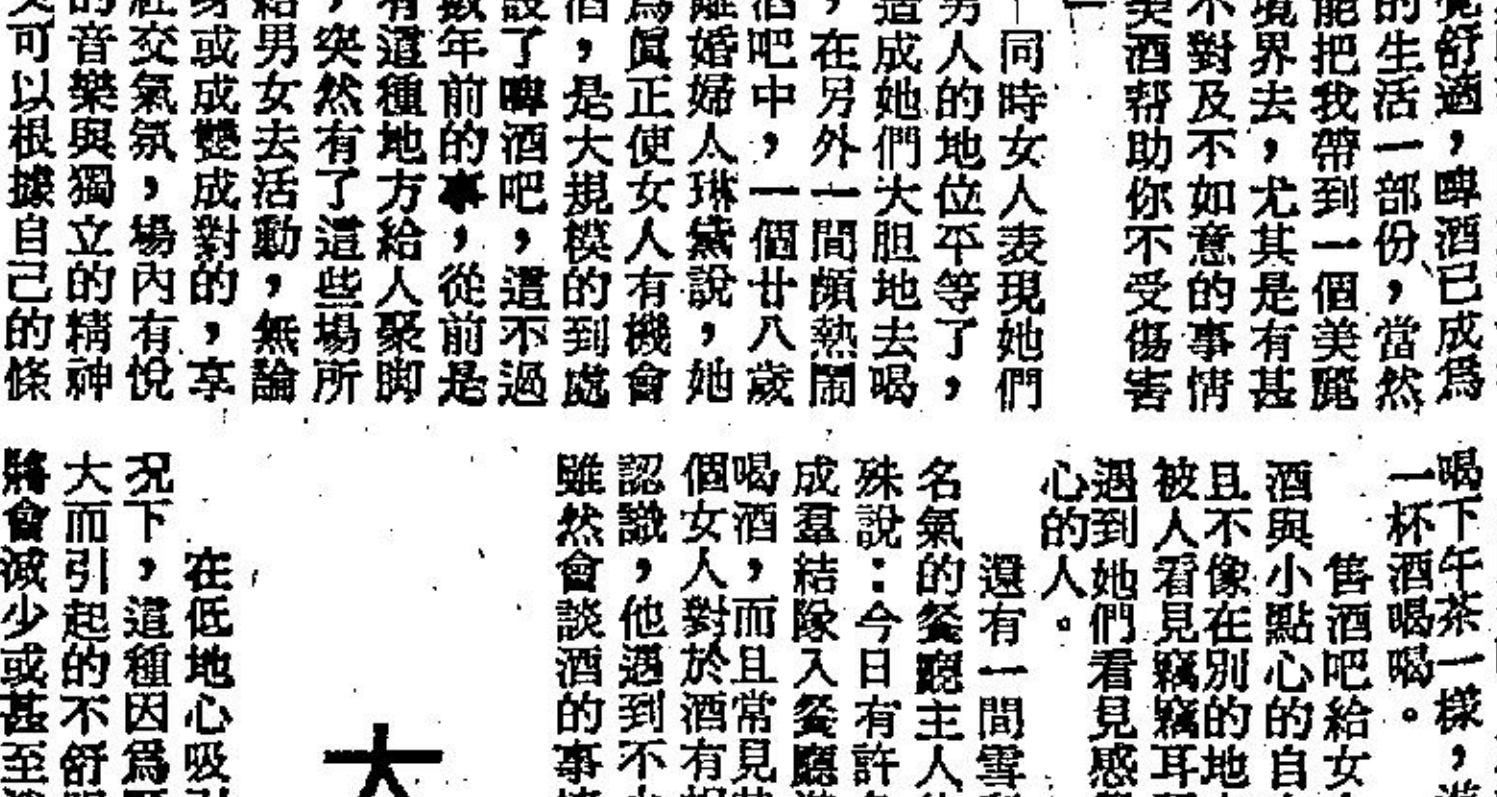 覺舒適，啤酒已成爲
的生活一部份，當然
能把我帶到一個美麗
境界去，尤其是有甚
不對及不如意的事情
美酒帮助你不受傷害
一同時女人表現她們
男人的地位平等了，
造成她們大胆地去喝
，在另外一間頗熱鬧
酒吧中，一個廿八歲
離婚婦人琳黛說，她
爲眞正使女人有機會
酒，是大規模的到處
設了啤酒吧，這不過
數年前的事，從前是
有這種地方給人聚脚
，突然有了這些場所
給男女去活動，無論
身或成雙成對的，享
社交氣氛，場內有悅
的音樂與獨立的精神
可以根據自己的條
喝下午茶一樣，
一杯酒喝喝。
售酒吧給女
酒與小點心的自
且不像在別的地
被人看見竊竊耳
遇到她們看見感
心的人。
還有一間雪
名氣的餐廳主人
殊說：今日有許
成羣結隊入餐廳
喝酒，而且常見
個女人對於酒有
認識，他遇到不
雖然會談酒的事
大
在低地心吸
况下，這種因爲
大而引起的不舒
將會減少或甚至